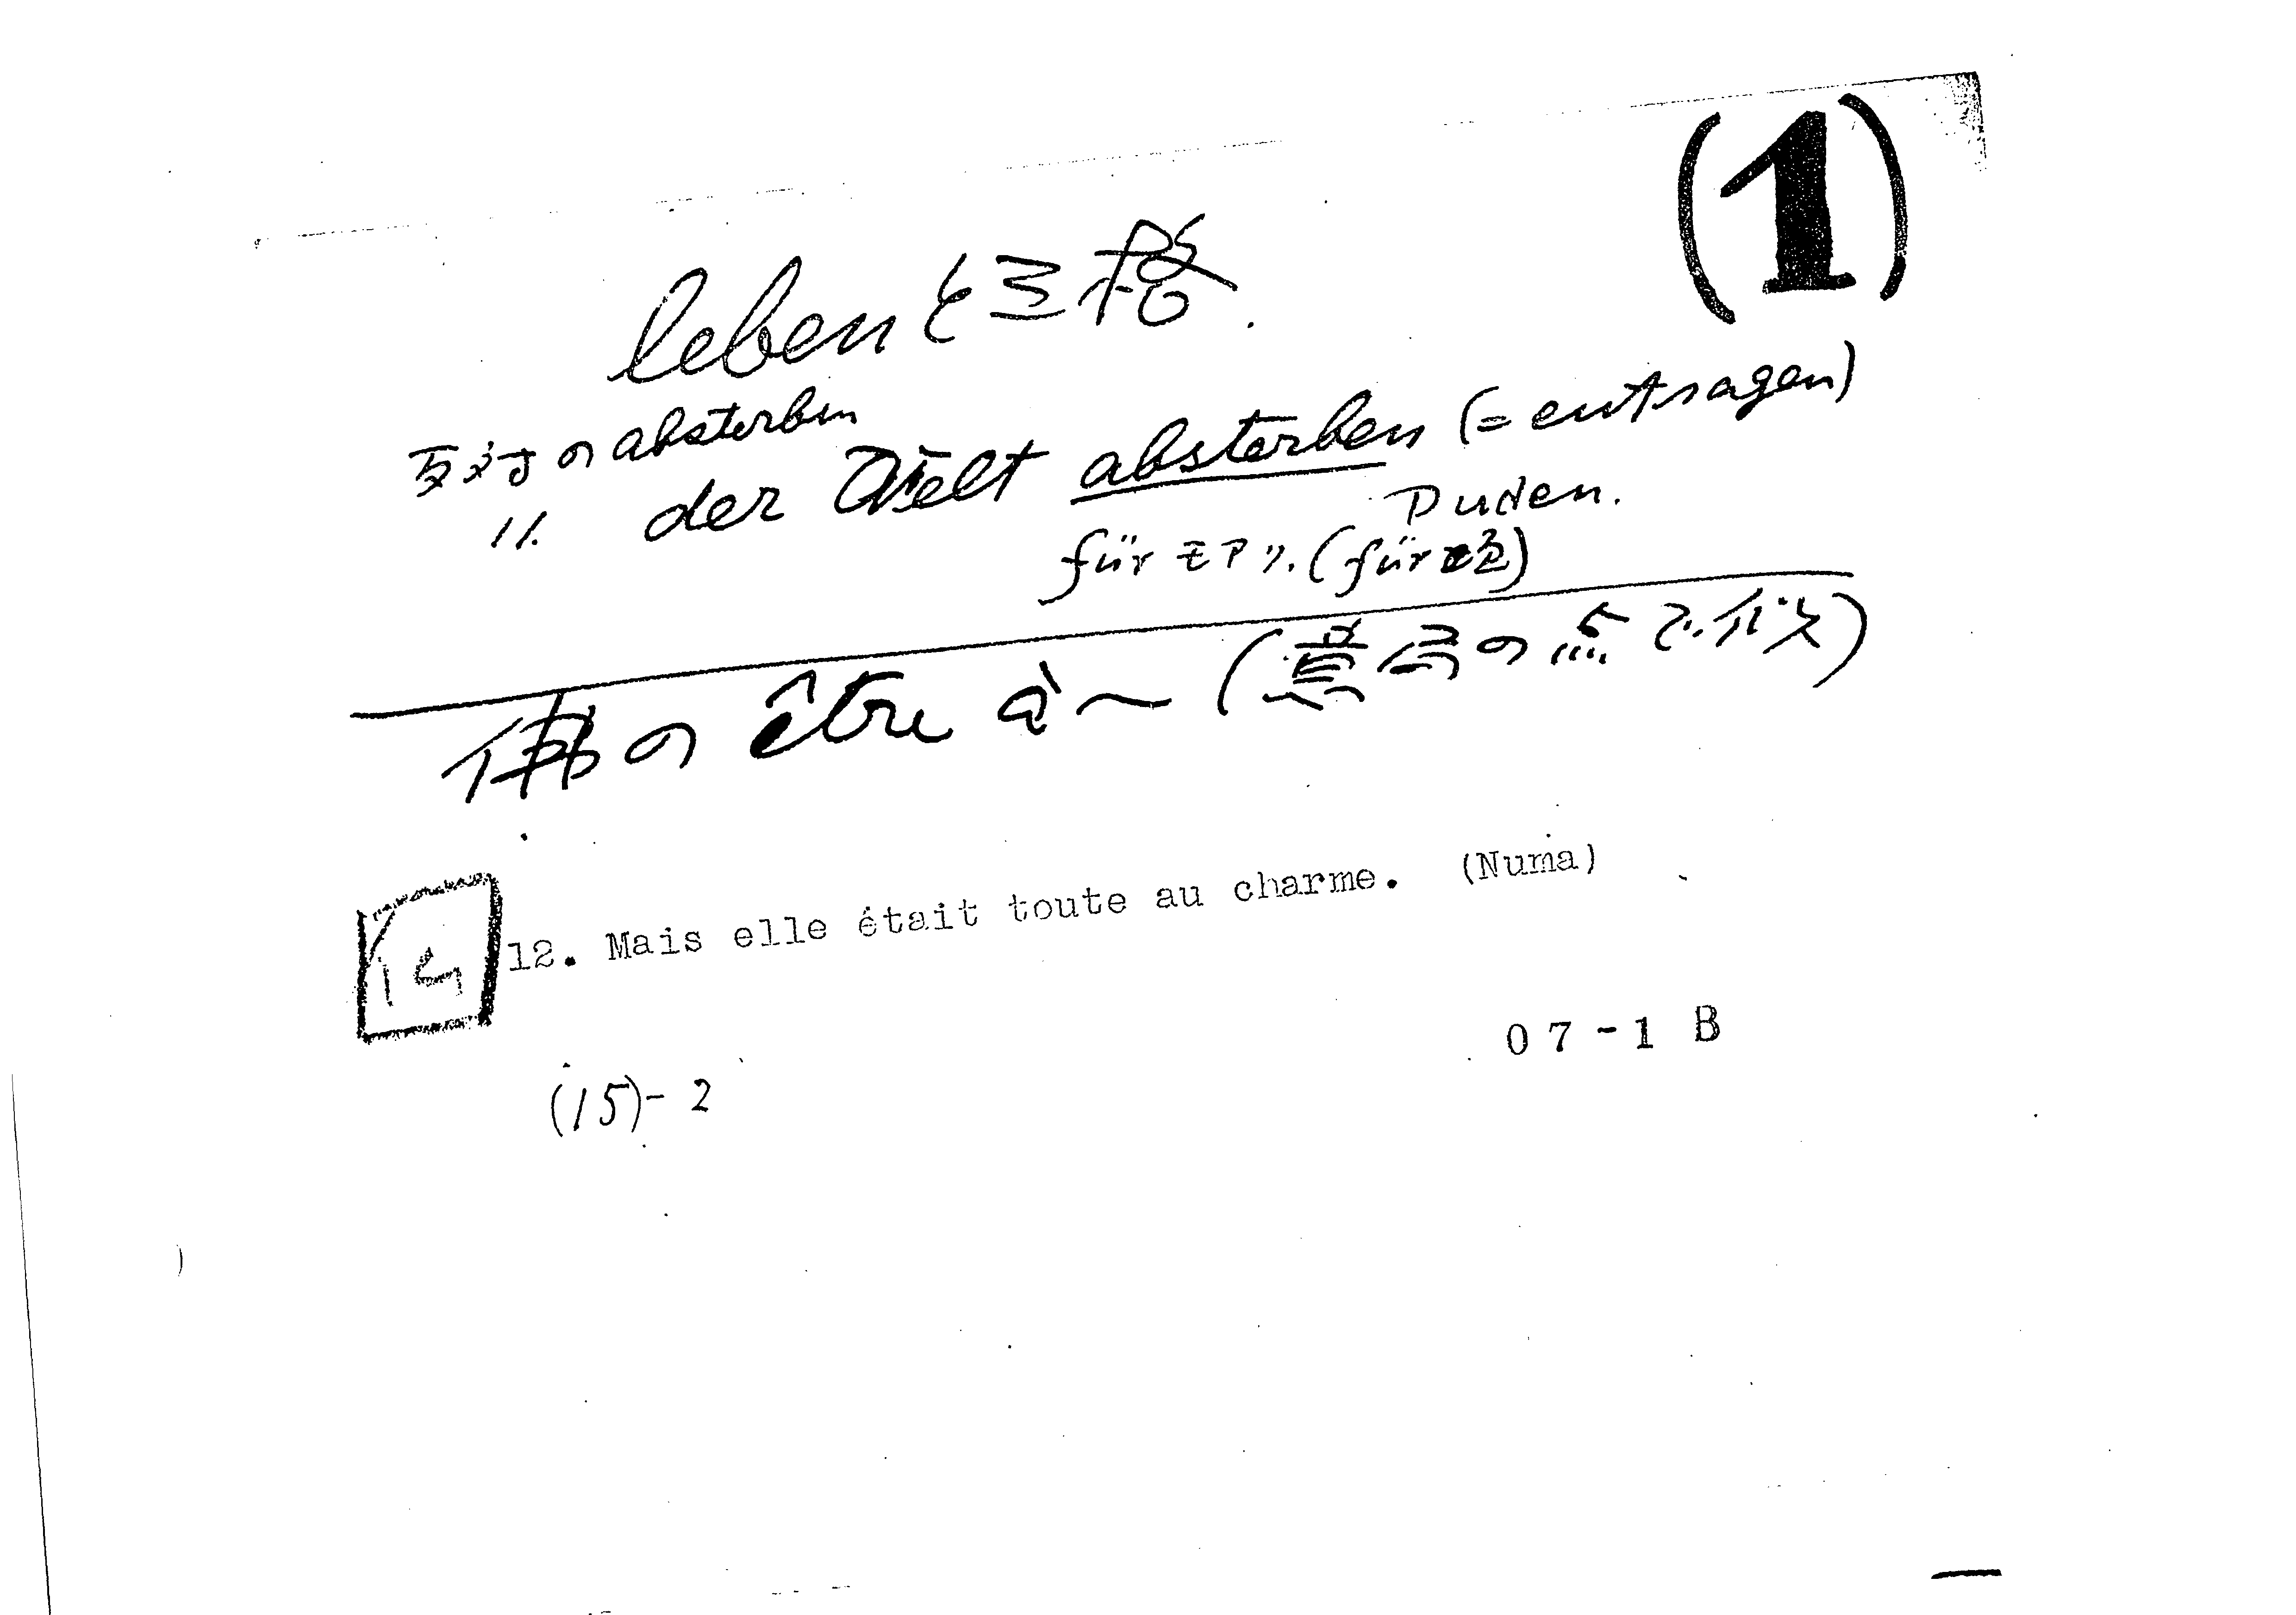 (1)
leben と三格.
反対の absterben
〃. der Welt absterben (= entsagen)
Duden.
für モアリ. (für と)
仏の être à ~ (意 の 点で似)
14 12. Mais elle était toute au charme. (Numa)
07-1 B
(15)-2